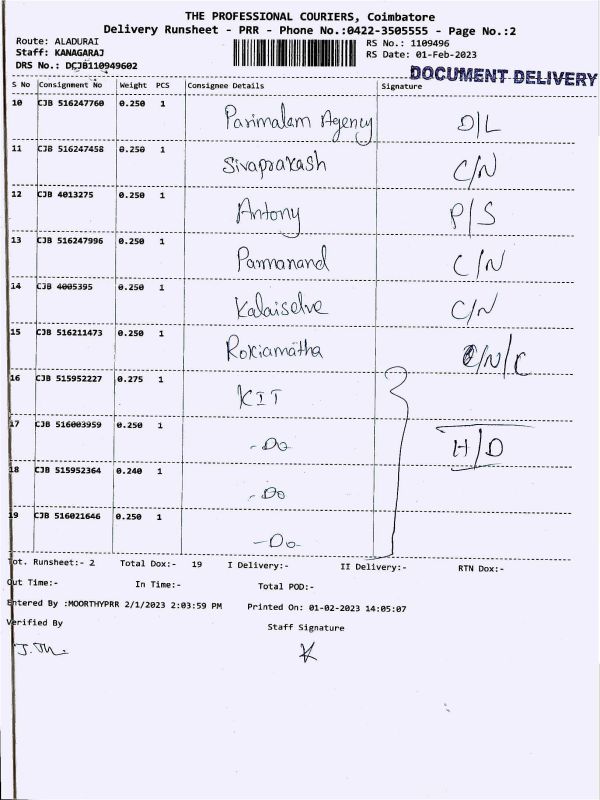 THE PROFESSIONAL COURIERS, Coimbatore
Delivery Runsheet - PRR - Phone No.:0422-3505555 - Page No.:2
Route: ALADURAI
RS No.: 1109496
Staff: KANAGARAJ
RS Date: 01-Feb-2023
DRS No.: DCJB110949602
DOCUMENT DELIVERY
S No Consignment No Weight PCS Consignee Details Signature
10 CJB 516247760 0.250 1 Parimalam Agency D/L
11 CJB 516247458 0.250 1 Sivaprakash C/N
12 CJB 4013275 0.250 1 Antony P/S
13 CJB 516247996 0.250 1 Parmanand C/N
14 CJB 4005395 0.250 1 Kalaiselve C/N
15 CJB 516211473 0.250 1 Rokiamatha C/N/C
16 CJB 515952227 0.275 1 KIT
17 CJB 516003959 0.250 1 -Do- H/D
18 CJB 515952364 0.240 1 -Do
19 CJB 516021646 0.250 1 -Do-
Tot. Runsheet:- 2 Total Dox:- 19 I Delivery:- II Delivery:- RTN Dox:-
Out Time:- In Time:- Total POD:-
Entered By :MOORTHYPRR 2/1/2023 2:03:59 PM Printed On: 01-02-2023 14:05:07
Verified By Staff Signature